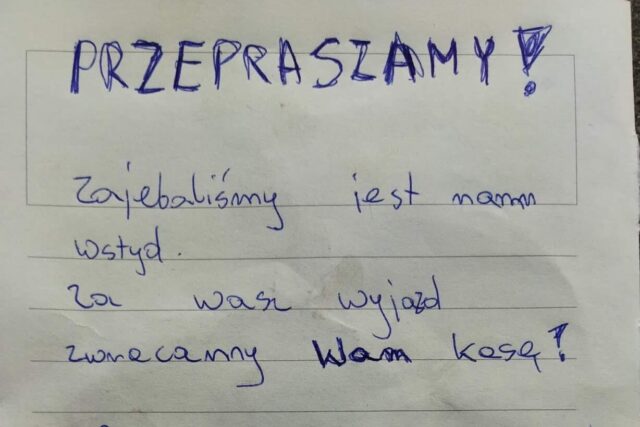 PRZEPRASZAMY!
Zajebaliśmy jest namm
wstyd.
Za wasz wyjazd
zwracamy Wam kasę!